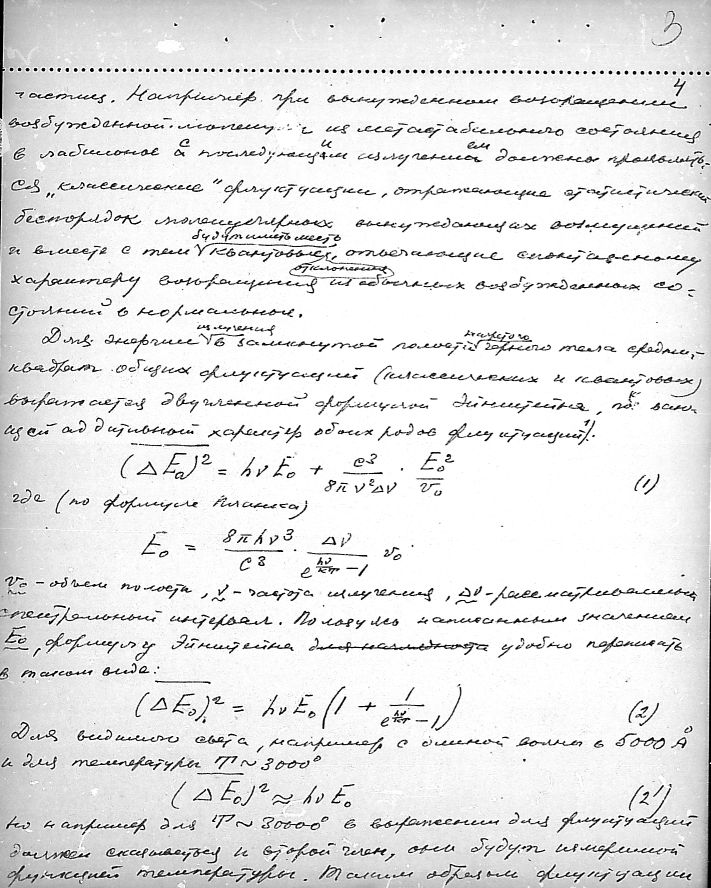 3
4
частиц. Например при вынужденном возвращении
возбужденной молекулы из метастабильного состояния
в лабильное с последующим излучением должны проявлять-
ся „классические“ флуктуации, отражающие статистический
беспорядок молекулярных вынуждающих возмущений
будут иметь место
и вместе с тем √ квантовые, отвечающие спонтанному
отклонения
характеру возвращения из обычных возбужденных со-
стояний в нормальное.
излучения нагретого
Для энергии √ в замкнутой полости √ черного тела средний
квадрат общих флуктуаций (классических и квантовых)
выражается двучленной формулой Эйнштейна,
щей аддитивный характер обоих родов флуктуаций¹).
(ΔE₀)² = hν E₀ + c³/8πν²Δν · E₀²/v₀ (1)
где (по формуле Планка)
E₀ = 8πhν³/c³ · Δν/(e^{hν/kT} − 1) v₀
v₀ – объем полости, ν – частота излучения, Δν – рассматриваемый
спектральный интервал. Пользуясь написанным значением
E₀, формулу Эйнштейна для наглядности удобно переписать
в таком виде:
(ΔE₀)² = hν E₀ (1 + 1/(e^{hν/kT} − 1)) (2)
Для видимого света, например с длиной волны в 5000 Å
и для температуры T ~ 3000°
(ΔE₀)² ≈ hν E₀ (2')
но например для T ~ 30000° в выражении для флуктуаций
должен сказываться и второй член, они будут измеримой
функцией температуры. Таким образом флуктуации